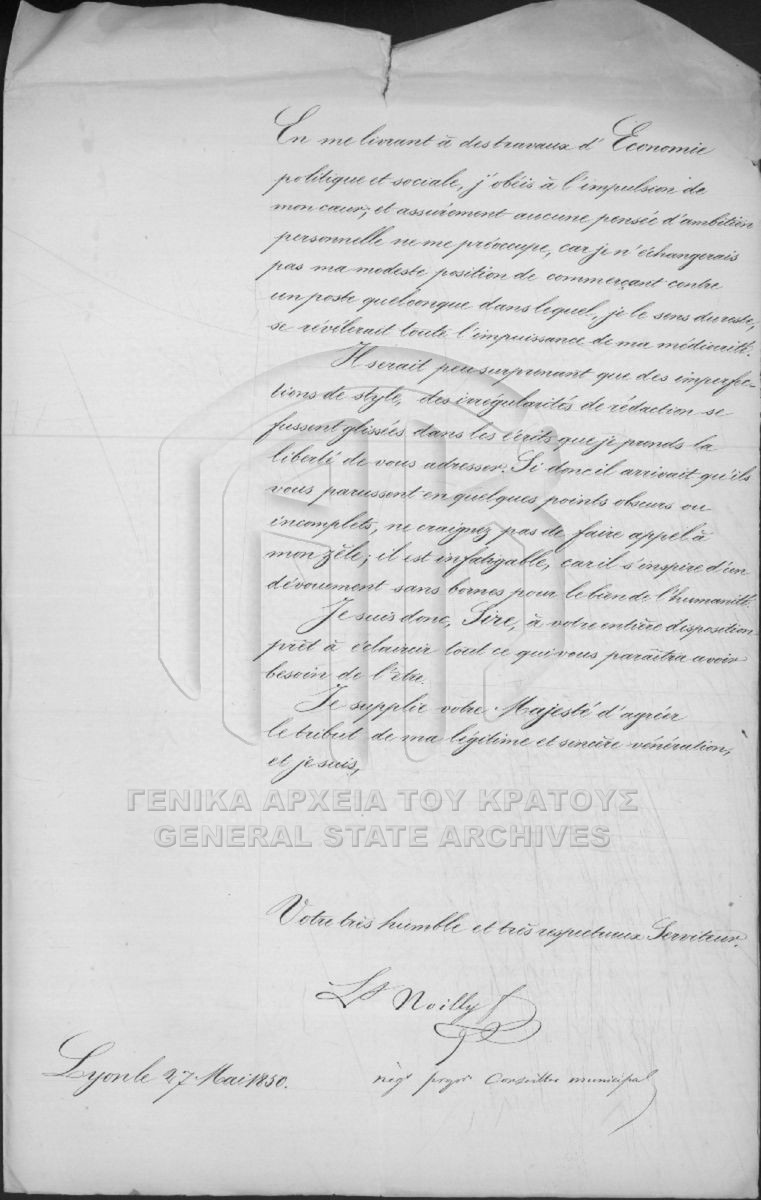 En me livrant à des travaux d'Economie
politique et sociale, j'obéis à l'impulsion de
mon cœur; et assurément aucune pensée d'ambition
personnelle ne me préoccupe, car je n'échangerais
pas ma modeste position de commerçant contre
un poste quelconque dans lequel, je le sens du reste,
se révèlerait toute l'impuissance de ma médiocrité.
Il serait peu surprenant que des imperfec-
tions de style, des irrégularités de rédaction se
fussent glissées dans les écrits que je prends la
liberté de vous adresser. Si donc il arrivait qu'ils
vous parussent en quelques points obscurs ou
incomplets, ne craignez pas de faire appel à
mon zèle; il est infatigable, car il s'inspire d'un
dévouement sans bornes pour le bien de l'humanité.
Je suis donc, Sire, à votre entière disposition
prêt à éclaircir tout ce qui vous paraîtra avoir
besoin de l'être.
Je supplie votre Majesté d'agréer
le tribut de ma légitime et sincère vénération,
et je suis,
ΓΕΝΙΚΑ ΑΡΧΕΙΑ ΤΟΥ ΚΡΑΤΟΥΣ
GENERAL STATE ARCHIVES
Votre très humble et très respectueux Serviteur.
Ls Noilly
Lyon le 27 Mai 1850.
négt Conseiller municipal